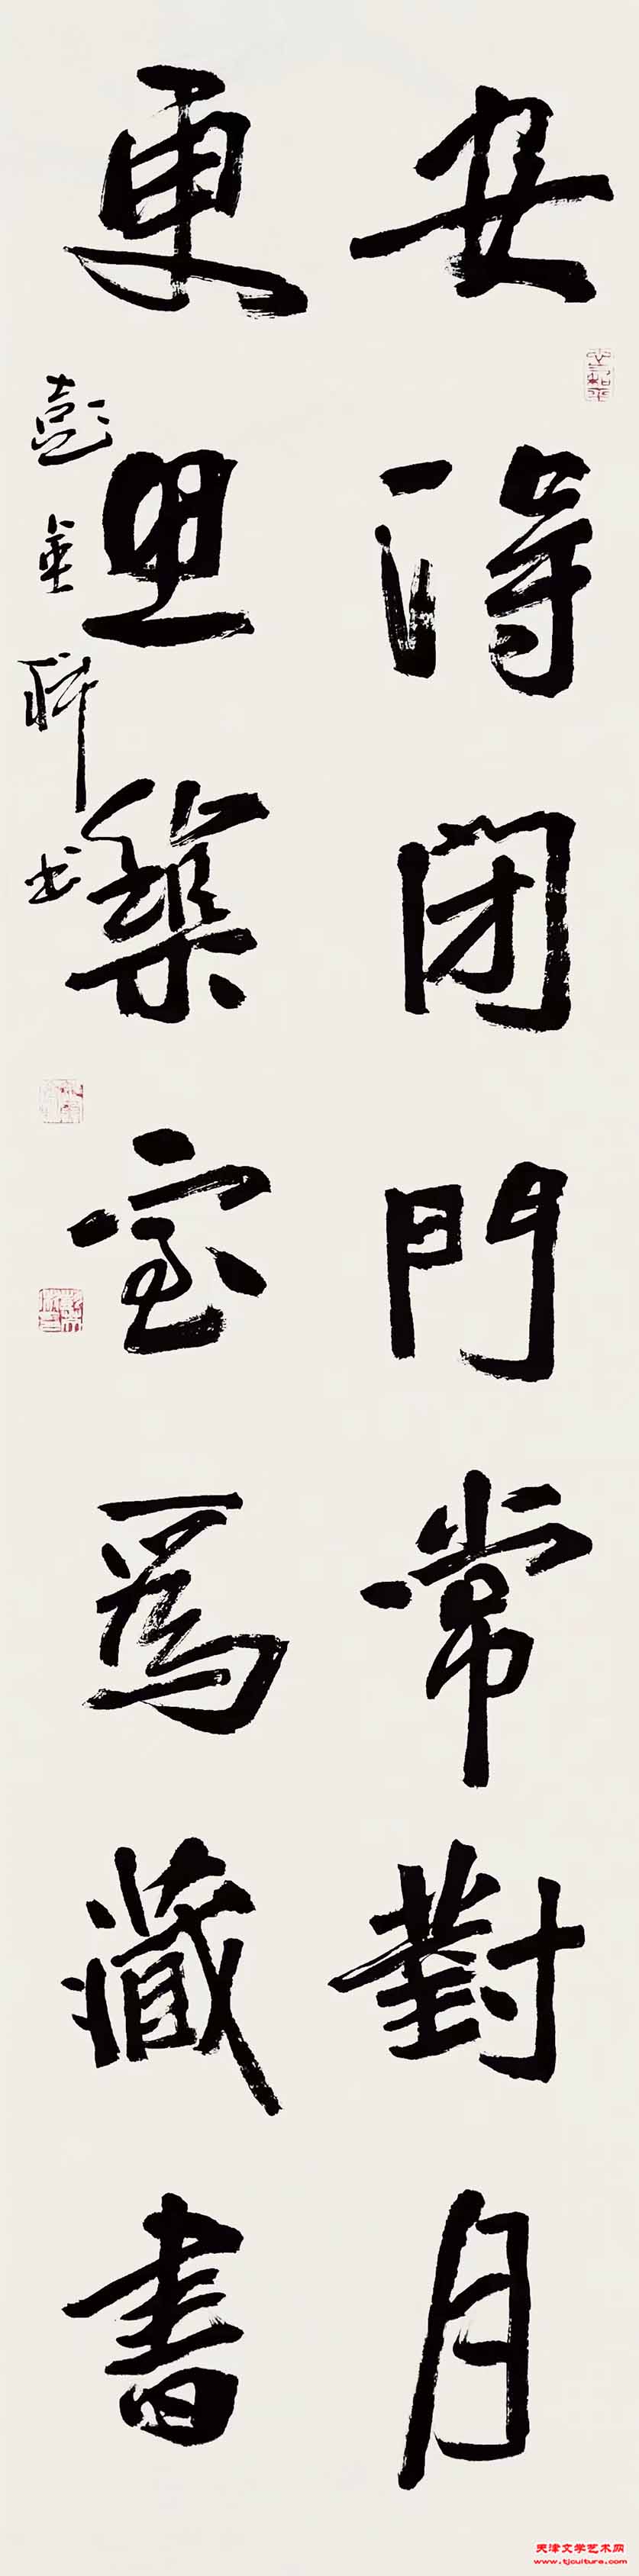 安得閉門常對月
更思築室爲藏書
彭金聯書
天津文学艺术网
www.tjculture.com